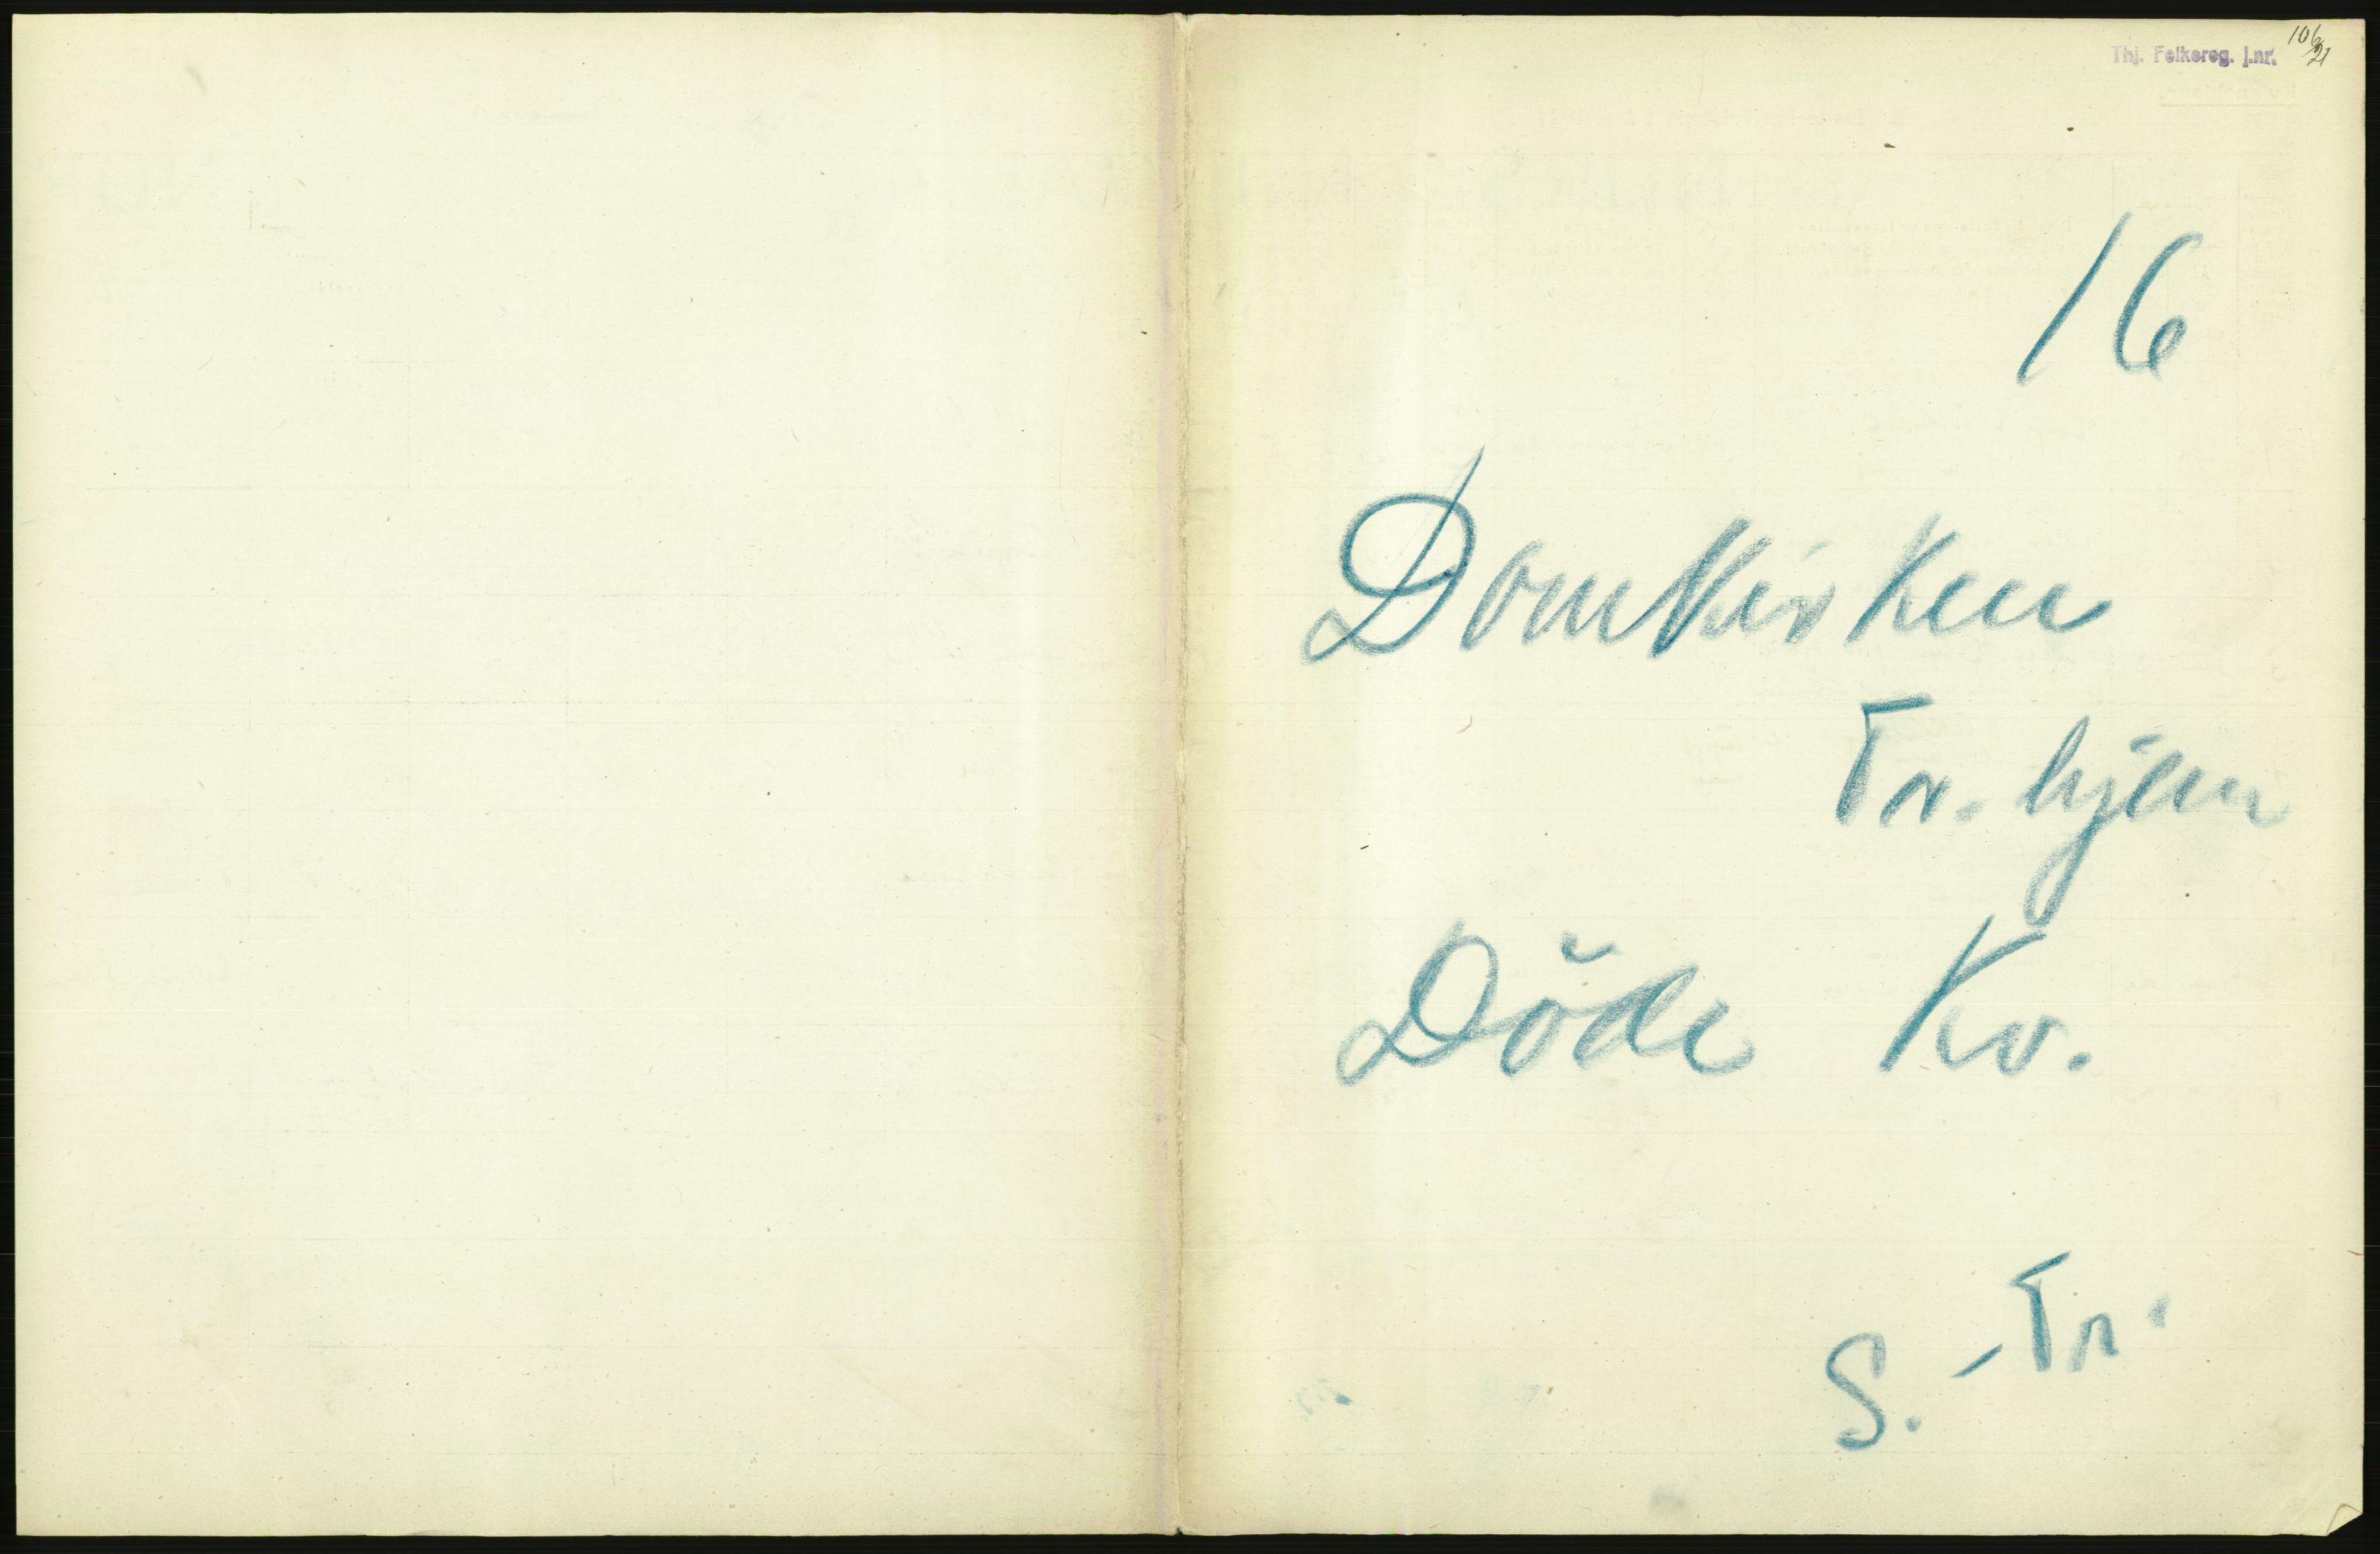 Thj. Folkereg. j.nr. 106/21
16
Domkirken
Tr.hjem
Döde Kv.
S. - Tr.